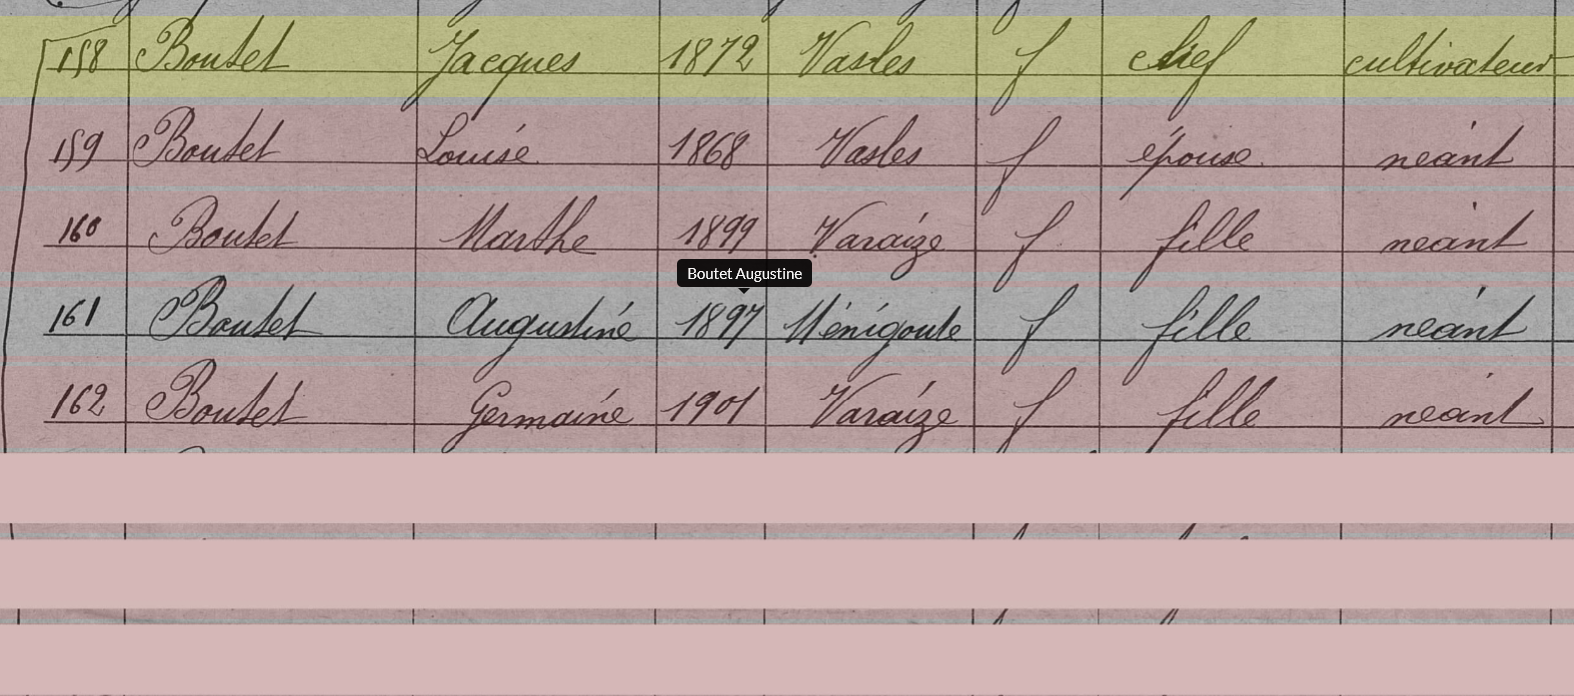 158 Boutet Jacques 1872 Vasles f chef cultivateur
159 Boutet Louise 1868 Vasles f épouse néant
160 Boutet Marthe 1899 Varaize f fille néant
Boutet Augustine
161 Boutet Augustine 1897 Ménigoute f fille néant
162 Boutet Germaine 1901 Varaize f fille néant